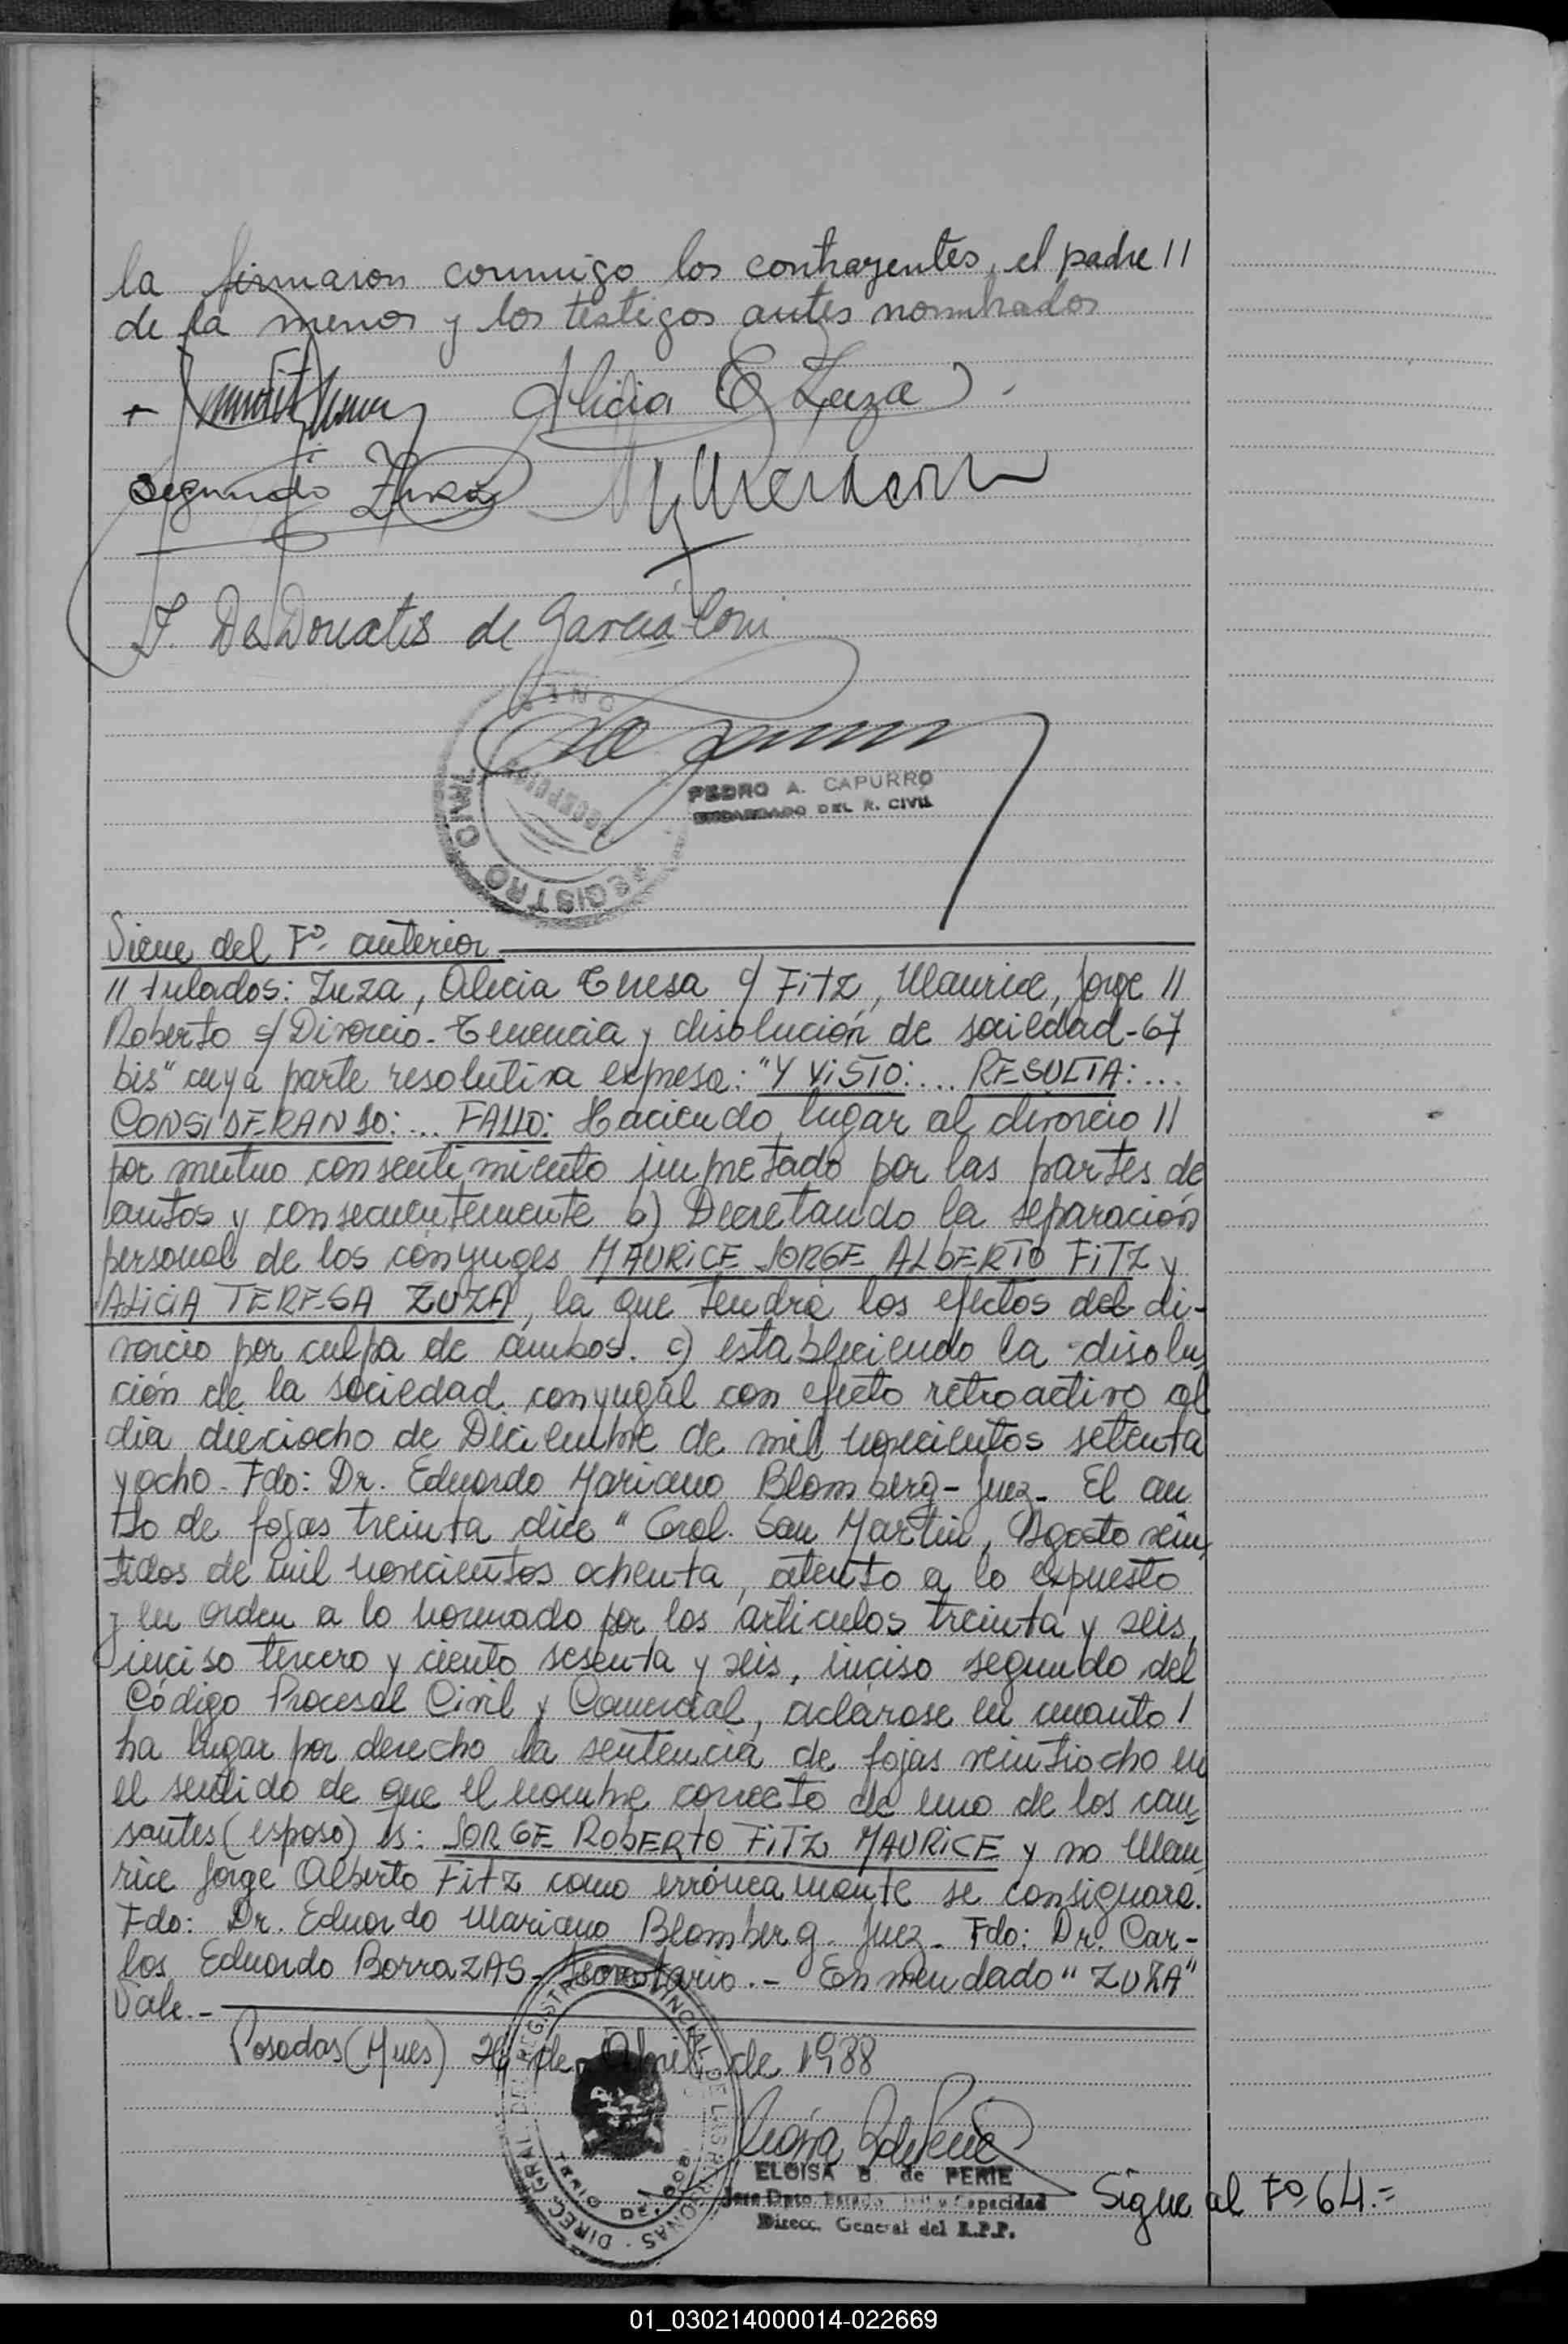 la firmaron conmigo los contrayentes, el padre //
de la menor y los testigos antes nombrados
Alicia T Zuza
Segundo Zuza
J. De Donatis de García
PEDRO A. CAPURRO
ENCARGADO DEL R. CIVIL
REGISTRO CIVIL
Viene del Fº anterior
// tulados: Zuza, Alicia Teresa c/ Fitz, Maurice, Jorge //
Roberto s/ Divorcio - Tenencia y disolución de sociedad - 67
bis" cuya parte resolutiva expresa: "Y VISTO: ... RESULTA: ...
CONSIDERANDO: ... FALLO: Haciendo lugar al divorcio //
por mutuo consentimiento impretado por las partes de
autos y consecuentemente b) Decretando la separación
personal de los cónyuges MAURICE JORGE ALBERTO FITZ y
ALICIA TERESA ZUZA, la que tendrá los efectos del di-
vorcio por culpa de ambos. c) estableciendo la disolu-
ción de la sociedad conyugal con efecto retroactivo al
día dieciocho de Diciembre de mil novecientos setenta
y ocho. Fdo: Dr. Eduardo Mariano Blomberg - Juez - El au
to de fojas treinta dice " Gral. San Martin, Agosto vein-
tidos de mil novecientos ochenta, atento a lo expuesto
y en orden a lo normado por los artículos treinta y seis,
inciso tercero y ciento sesenta y seis, inciso segundo del
Código Procesal Civil y Comercial, aclárase en cuanto /
ha lugar por derecho la sentencia de fojas veintiocho en
el sentido de que el nombre correcto de uno de los cau-
santes (esposo) es: JORGE ROBERTO FITZ MAURICE y no Mau-
rice Jorge Alberto Fitz como erróneamente se consignara.
Fdo: Dr. Eduardo Mariano Blomberg. Juez - Fdo: Dr. Car-
los Eduardo Borrazas - Secretario.- Enmendado "ZUZA"
Vale.-
Posadas (Mnes) 26 de Abril de 1988
ELOISA B. de PERIE
Jefe Dpto. Estado Civil y Capacidad
Direcc. General del R.P.P.
Sigue al Fº 64.=
01_030214000014-022669